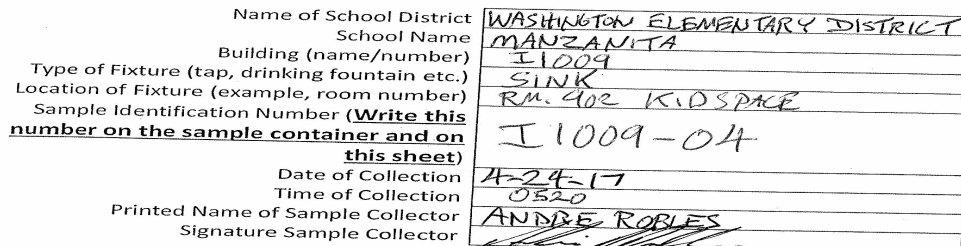 Name of School District WASHINGTON ELEMENTARY DISTRICT
School Name MANZANITA
Building (name/number) I1009
Type of Fixture (tap, drinking fountain etc.) SINK
Location of Fixture (example, room number) RM. 902 KIDSPACE
Sample Identification Number (Write this
number on the sample container and on
this sheet) I1009-04
Date of Collection 4-24-17
Time of Collection 0520
Printed Name of Sample Collector ANDRE ROBLES
Signature Sample Collector